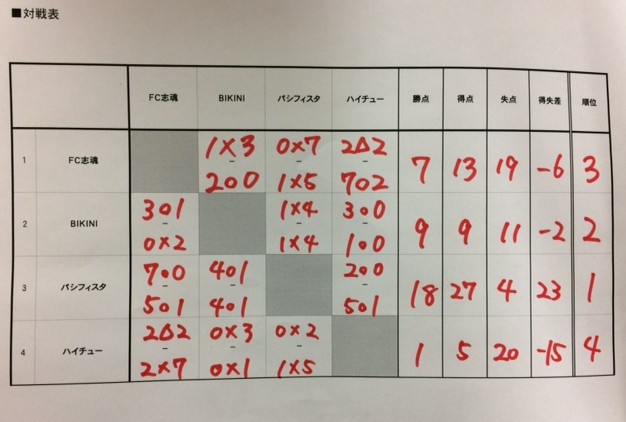 ■対戦表
FC志魂 BIKINI パシフィスタ ハイチュー 勝点 得点 失点 得失差 順位
1 FC志魂 1×3 0×7 2△2 7 13 19 -6 3
2○0 1×5 7○2
2 BIKINI 3○1 1×4 3○0 9 9 11 -2 2
0×2 1×4 1○0
3 パシフィスタ 7○0 4○1 2○0 18 27 4 23 1
5○1 4○1 5○1
4 ハイチュー 2△2 0×3 0×2 1 5 20 -15 4
2×7 0×1 1×5